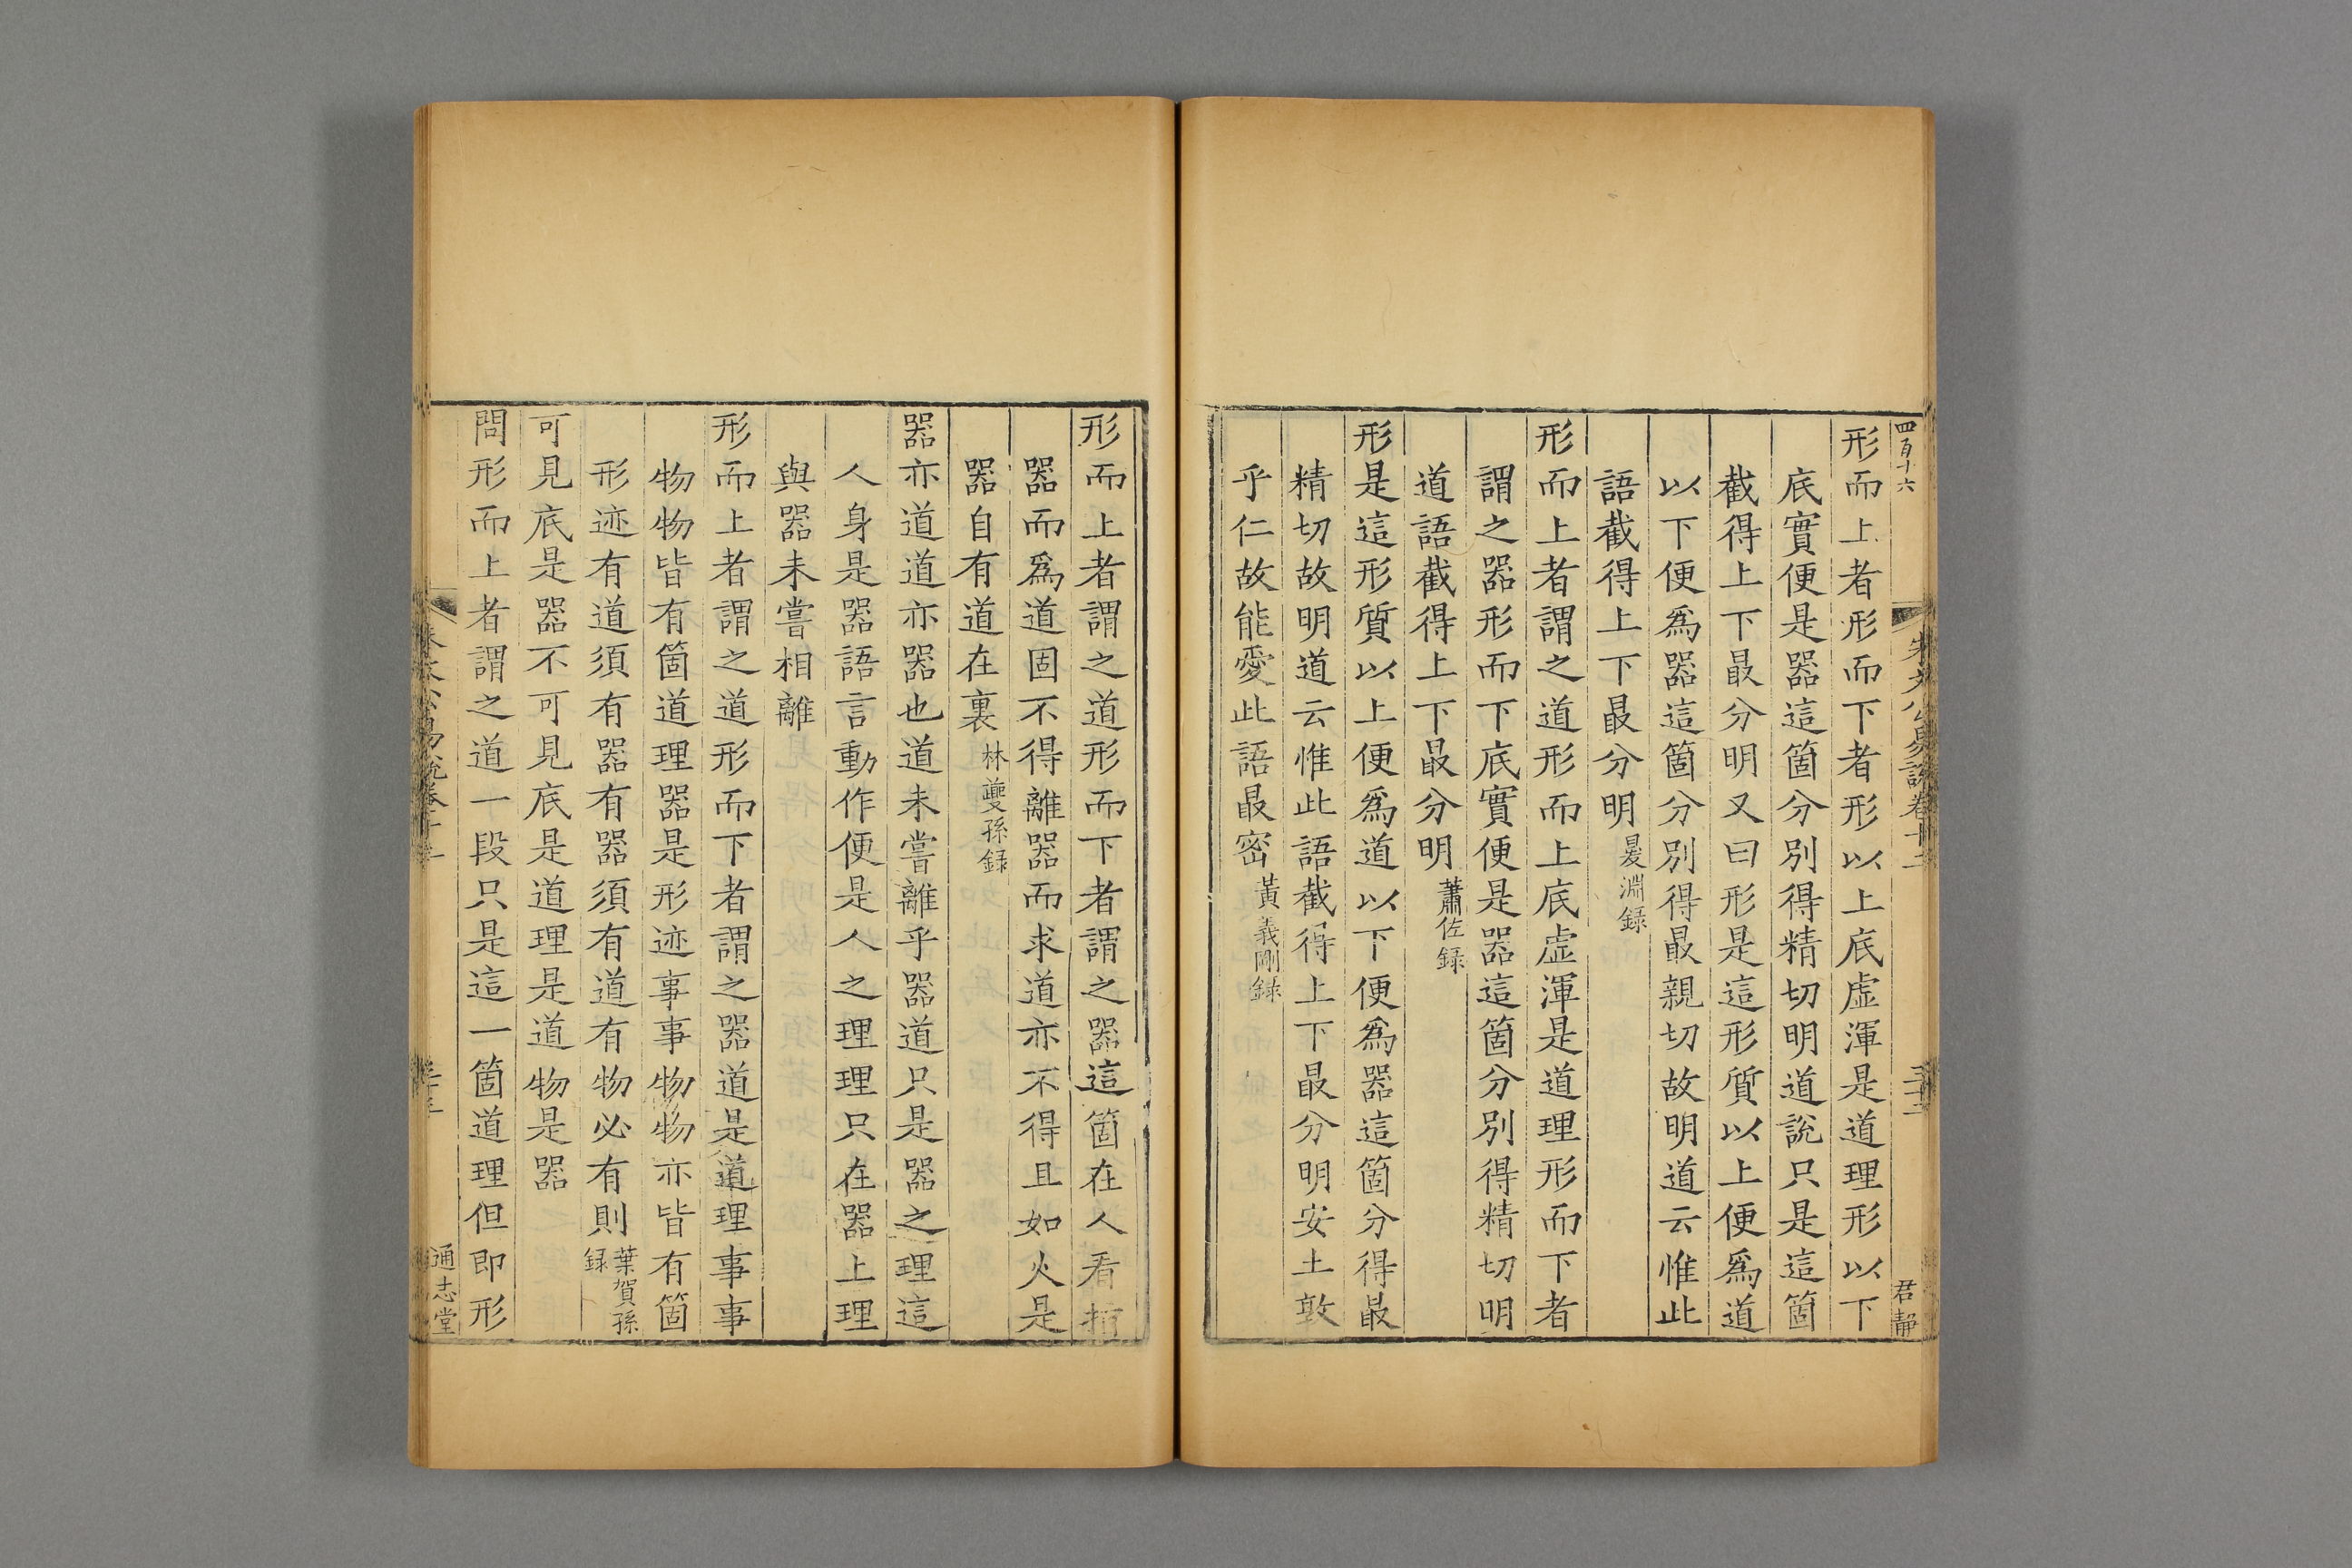 四百十六
朱文公易說卷十二
三十二
君靜
形而上者形而下者形以上底虛渾是道理形以下
底實便是器這箇分別得精切明道說只是這箇
截得上下最分明又曰形是這形質以上便爲道
以下便爲器這箇分別得最親切故明道云惟此
語截得上下最分明㬊淵録
形而上者謂之道形而上底虛渾是道理形而下者
謂之器形而下底實便是器這箇分別得精切明
道語截得上下最分明蕭佐録
形是這形質以上便爲道以下便爲器這箇分得最
精切故明道云惟此語截得上下最分明安土敦
乎仁故能愛此語最密黃義剛録
形而上者謂之道形而下者謂之器這箇在人看
器而爲道固不得離器而求道亦不得且如火是
器自有道在裏林夔孫録
器亦道道亦器也道未嘗離乎器道只是器之理這
人身是器語言動作便是人之理理只在器上理
與器未嘗相離
形而上者謂之道形而下者謂之器道是道理事事
物物皆有箇道理器是形迹事事物物亦皆有箇
形迹有道須有器有器須有道有物必有則葉賀孫
録
可見底是器不可見底是道理是道物是器
問形而上者謂之道一段只是這一箇道理但即形
通志堂